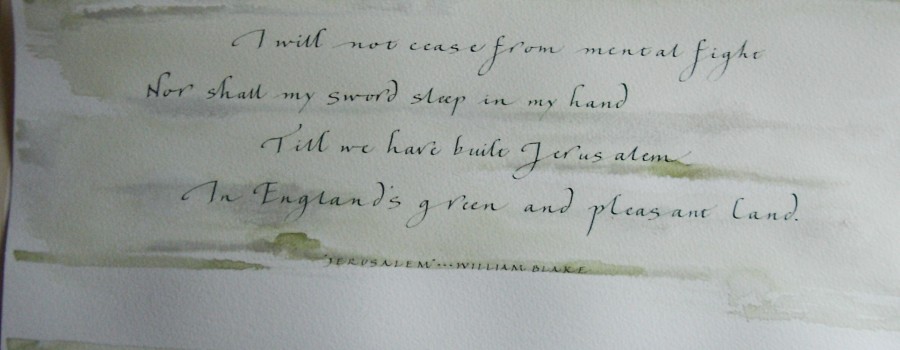 I will not cease from mental fight
Nor shall my sword sleep in my hand
Till we have built Jerusalem
In England's green and pleasant land.
"JERUSALEM"...WILLIAM BLAKE